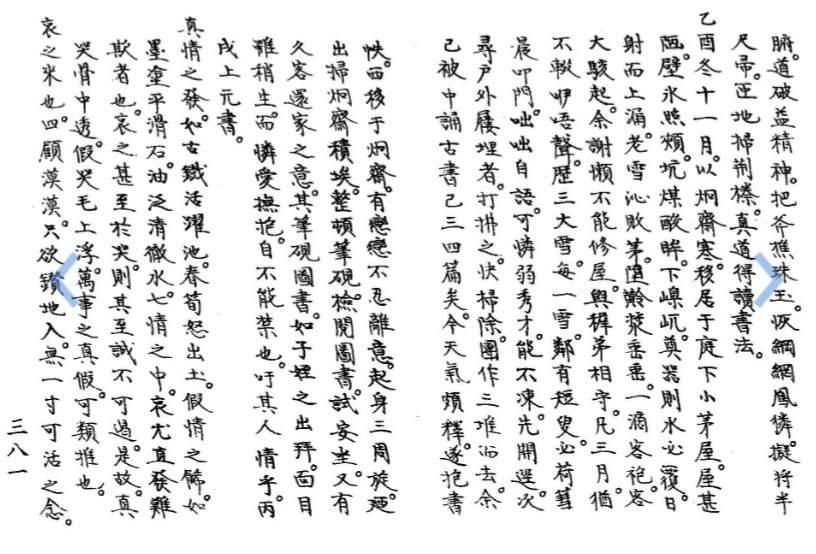 腑。道破益精神。把斧樵珠玉。恢綱網鳳憐擬將半
尺帚。匝地掃荊榛。真道得讀書法。
乙酉冬十一月。以炯齋寒移居于庭下小茅屋。屋甚
陋。壁氷照頰。坑煤酸眸。下嵲屼。奠器則水必覆。日
射而上漏。老雪沁敗茅。墮漿垂垂。一滴客袍。客
大駭起。余謝懶不能修屋。與穉弟相守。凡三月。猶
不輟咿唔聲。歷三大雪。每一雪。鄰有短叟。必荷篲
晨叩門。咄咄自語。可憐弱秀才。能不凍。先開逕。次
尋戶外屨埋者。打拂之。快掃除。團作三堆而去。余
已被中誦古書已三四篇矣。今天氣頗釋。遂抱書
帙。西移于炯齋。有戀戀不忍離意。起身三周旋。廼
出掃炯齋積埃。整頓筆硯。檢閱圖書。試安坐。又有
久客還家之意。其筆硯圖書。如子姪之出拜。面目
雖稍生。而憐愛撫抱。自不能禁也。吁其人情乎。丙
戌上元書。
真情之發。如古鐵活躍池。春筍怒出土。假情之飾。如
墨塗平滑石。油泛清徹水。七情之中。哀尤直發難
欺者也。哀之甚至於哭。則其至誠不可遏。是故。真
哭骨中透。假哭毛上浮。萬事之真假。可類推也。
哀之來也。四顧漠漠。只欲鑽地入。無一寸可活之念。
三八一